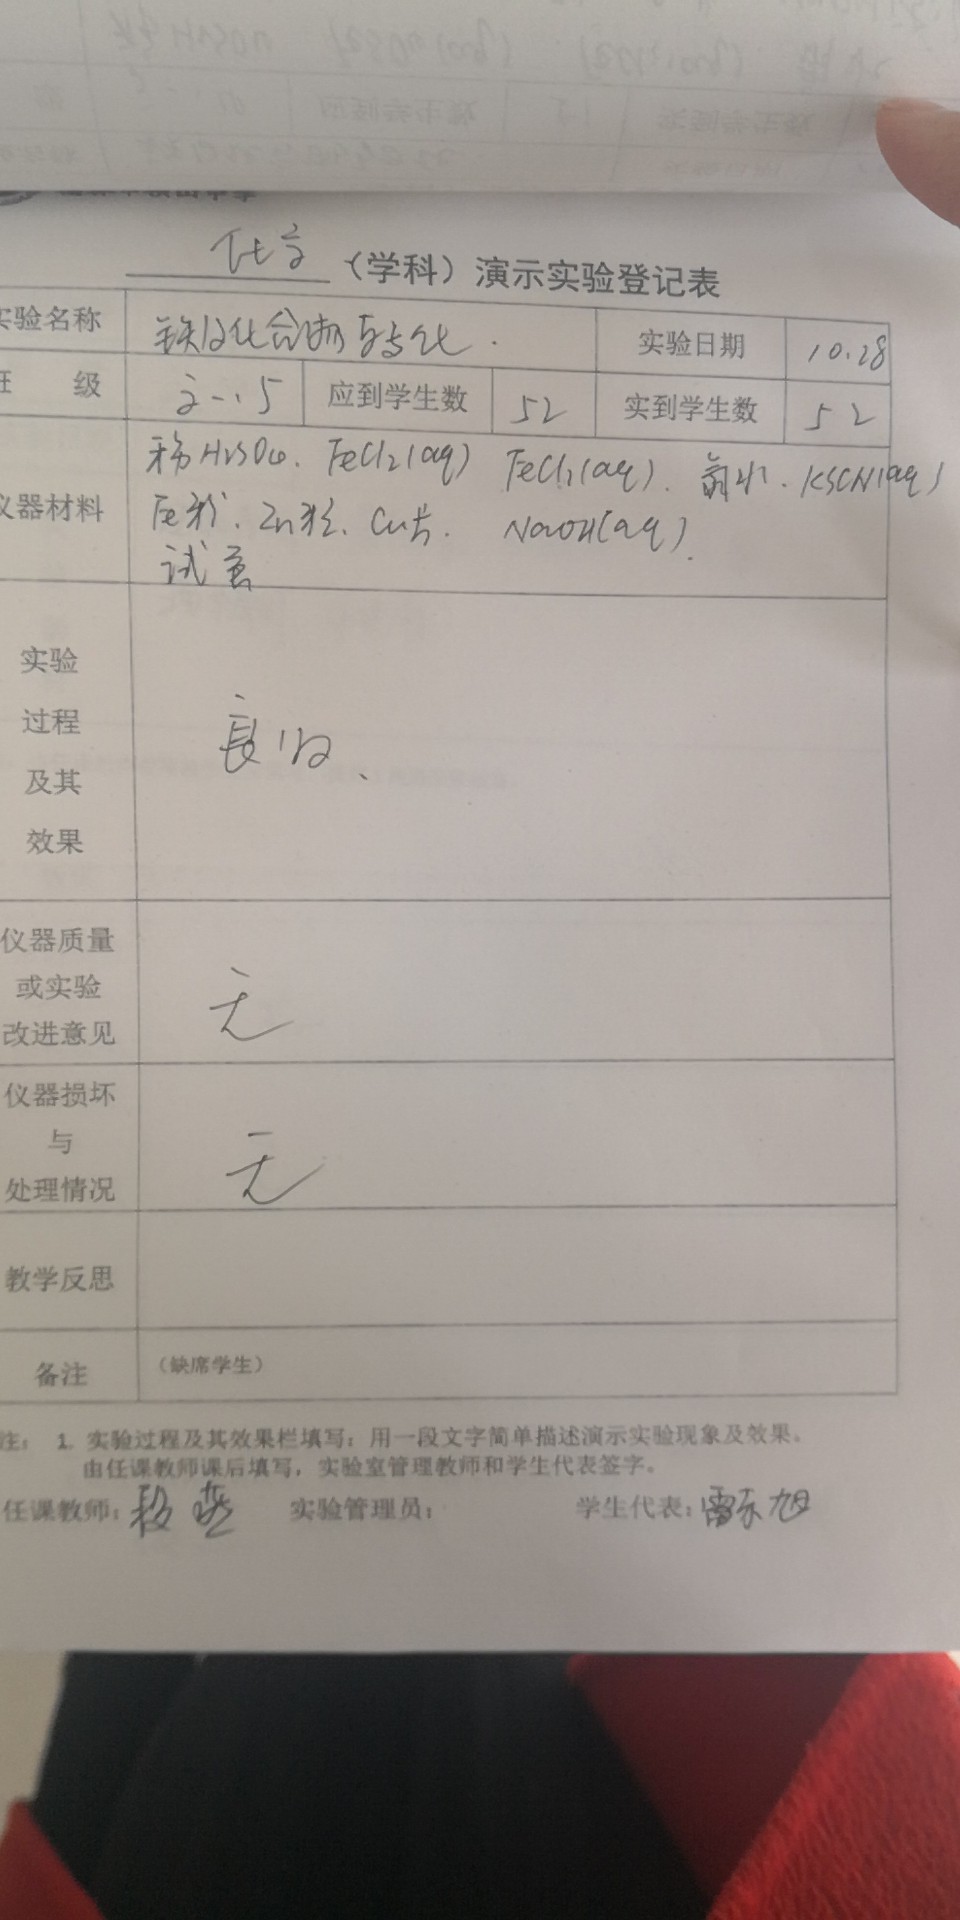 化学（学科）演示实验登记表
实验名称 铁及化合物的转化. 实验日期 10.28
班 级 高一.5 应到学生数 52 实到学生数 52
稀H2SO4、FeCl2(aq) FeCl3(aq)、氯水、KSCN(aq)
仪器材料 Fe粉、Zn粒、Cu片、NaOH(aq).
试管
实验
过程
良好、
及其
效果
仪器质量
或实验 无
改进意见
仪器损坏
与 无
处理情况
教学反思
备注 （缺席学生）
注： 1. 实验过程及其效果栏填写：用一段文字简单描述演示实验现象及效果。
由任课教师课后填写，实验室管理教师和学生代表签字。
任课教师：段燕 实验管理员： 学生代表：雷东旭